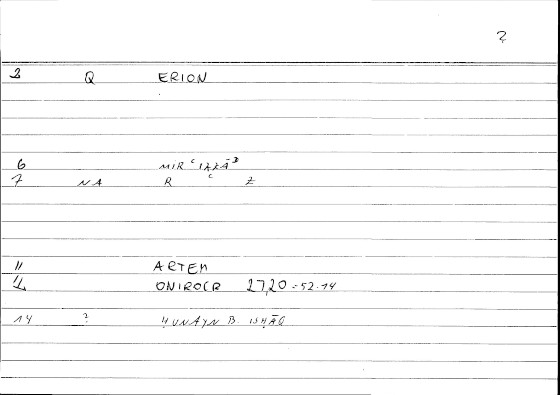 2
3 Q ERION
6 MIR ʿIZZĀD
7 NA R ʿ Z
11 ARTEM
12 ONIROCR 27,20 = 52.14
14 ? ḤUNAYN B. ISḤĀQ